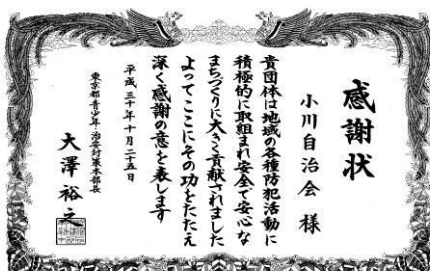 感謝状
小川自治会 様
貴団体は地域の各種防犯活動に
積極的に取組まれ安全で安心な
まちづくりに大きく貢献されました
よってここにその功をたたえ
深く感謝の意を表します
平成三十年十月二十五日
東京都青少年・治安対策本部長
大澤裕之